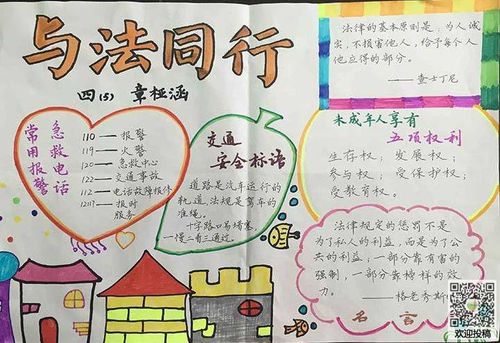 与法同行
四(5) 章桠涵
常用报警
急救电话
110——报警
119——火警
120——急救中心
122——交通事故
112——电话故障报修
12117——报时
服务
交通
安全标语
道路是汽车运行的
轨道,法规是驾车的
准绳。
十字路口易堵塞
一慢二看三通过。
法律的基本原则是:为人诚
实,不损害他人,给予每个人
他应得的部分。
——查士丁尼
未成年人享有
五项权利
生存权; 发展权;
参与权; 受保护权;
受教育权。
法律规定的惩罚不是
为了私人的利益,而是为了公
共的利益;一部分靠有害的
强制,一部分靠榜样的效
力。
——格老秀斯
名言
欢迎投稿